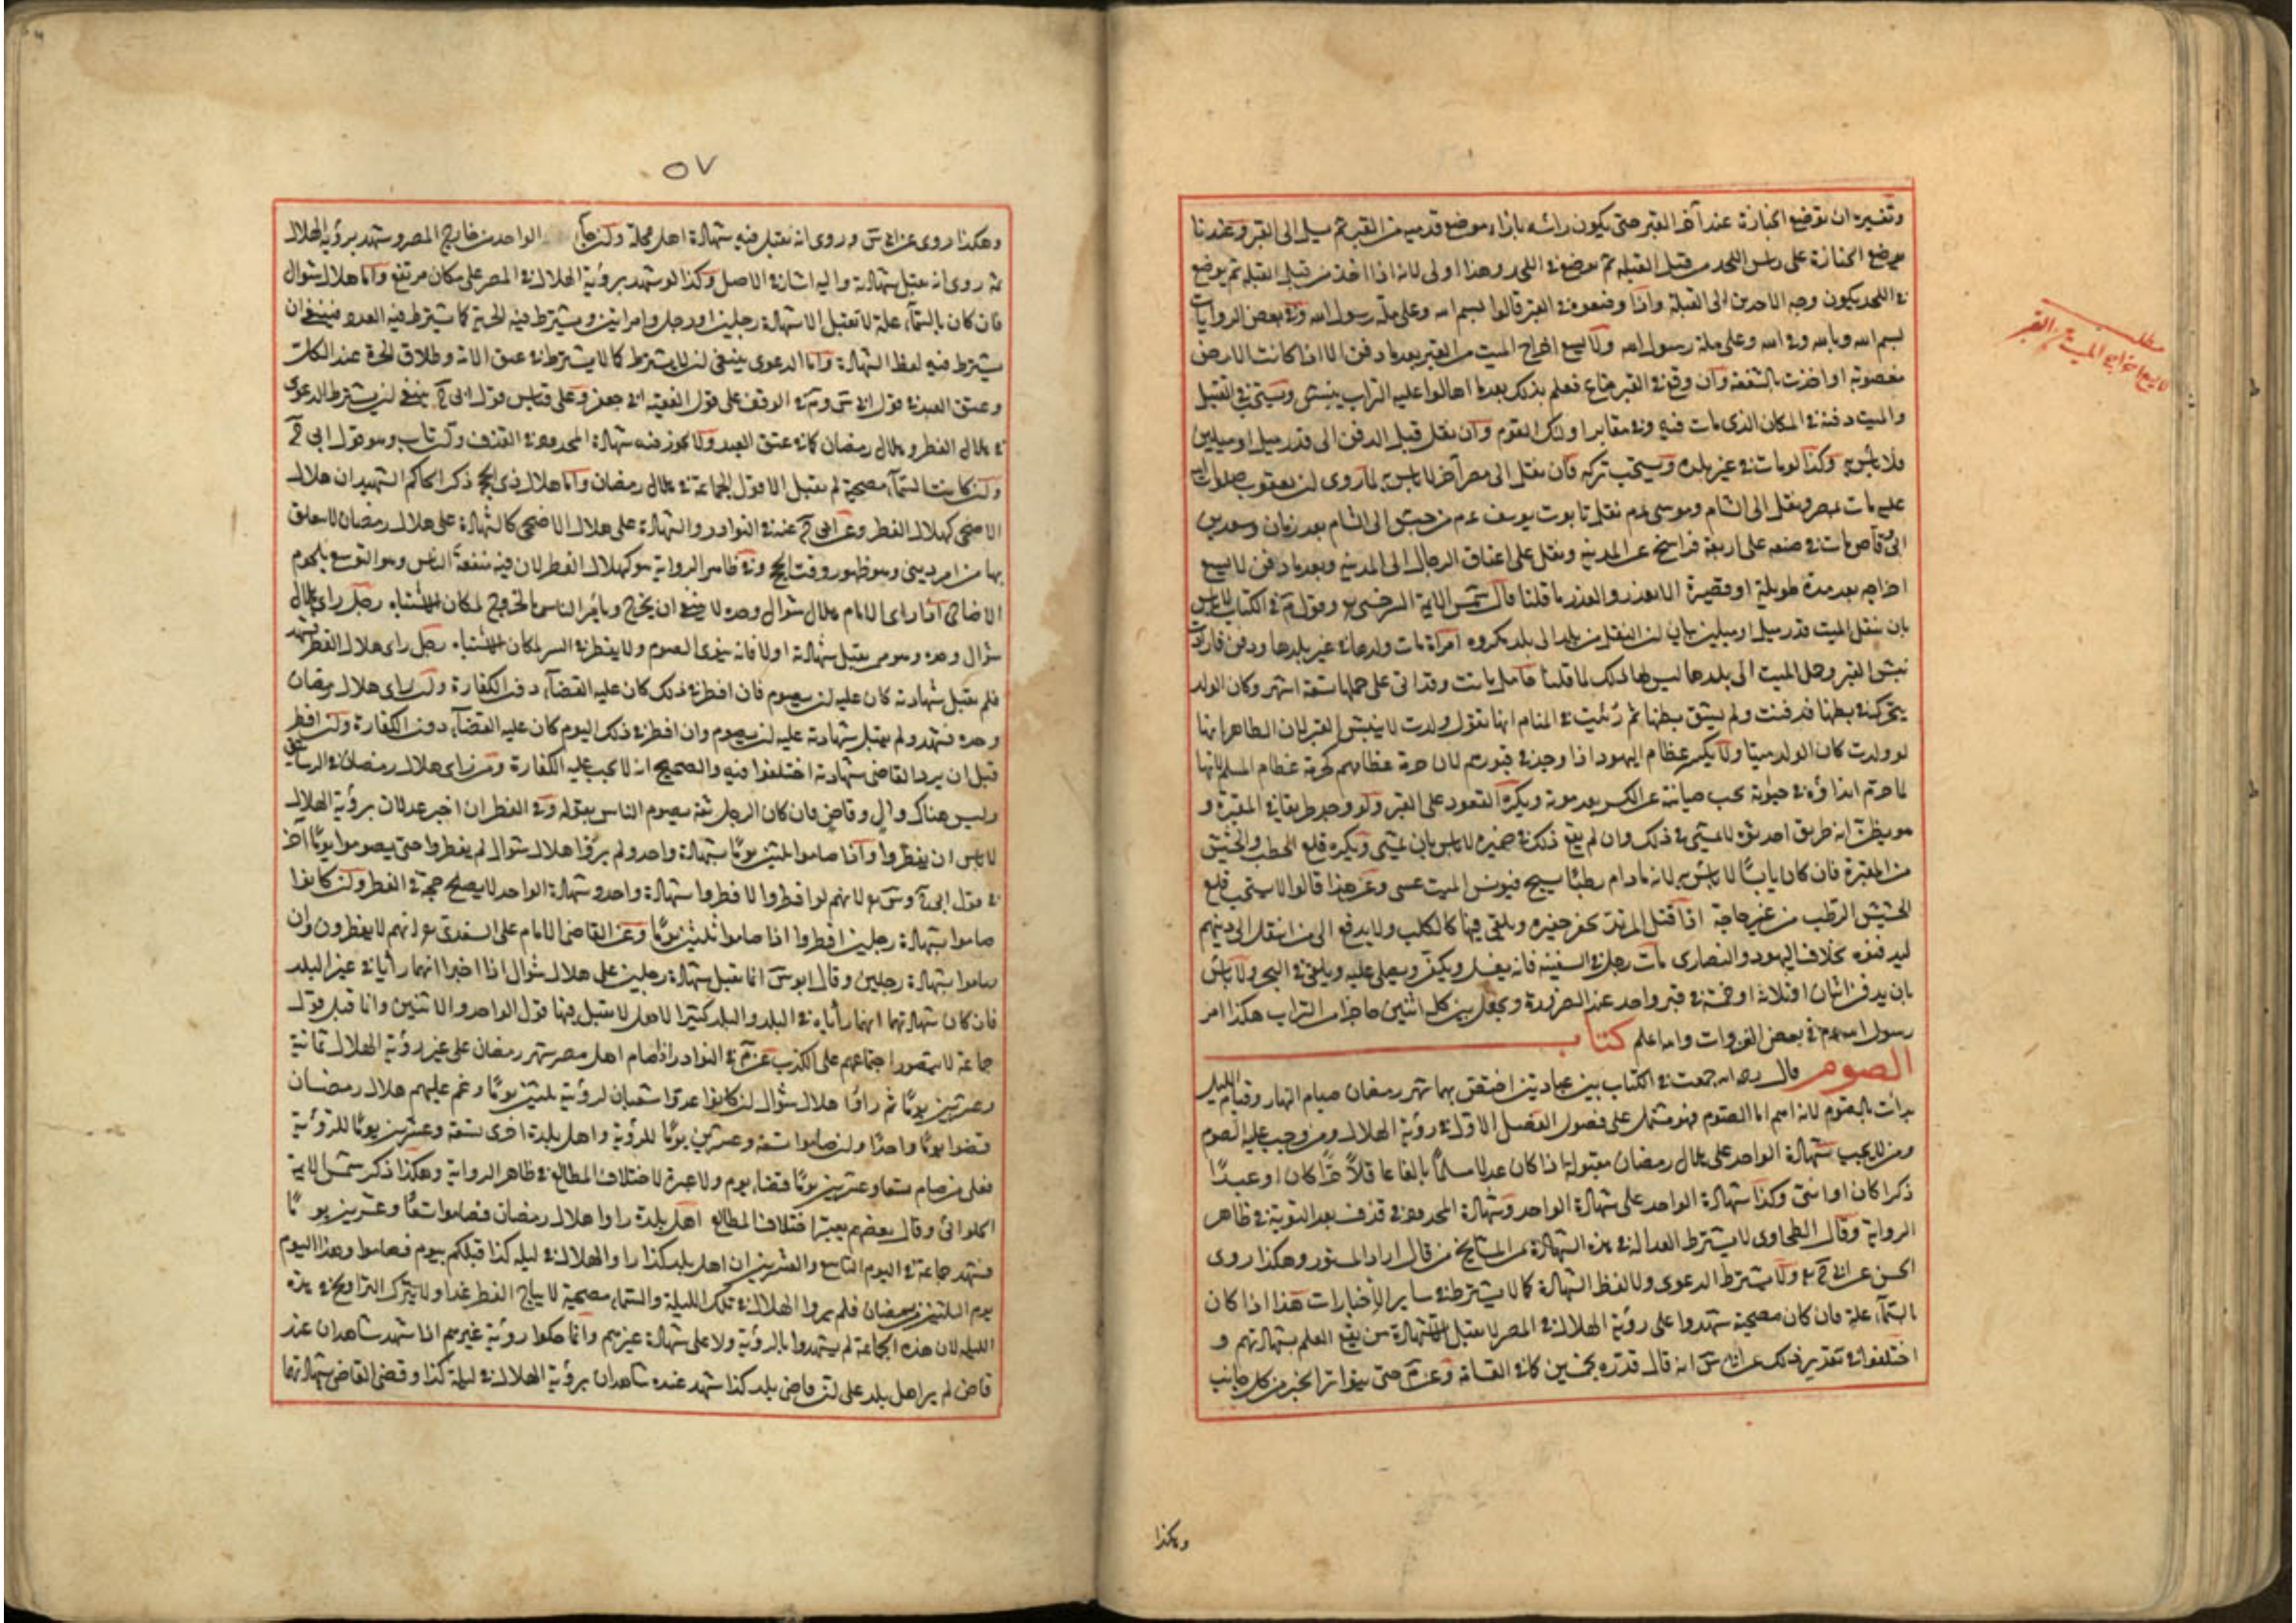 وتفسيره ان توضع الجنازة عند آخر القبر حتى يكون رأسه بازاء موضع قدميه من القبر ثم يسل الى القبر وعندنا
توضع الجنازة على رأس اللحد من قبل القبلة ثم توضع في اللحد وهذا اولى لانه اذا اخذ من قبل القبلة ثم يوضع
في اللحد يكون وجه الآخذين الى القبلة واذا وضعوه في القبر قالوا بسم الله وعلى ملة رسول الله وفي بعض الروايات
بسم الله وبالله وفي الله وعلى ملة رسول الله ولا يسع اخراج الميت من القبر بعدما دفن الا اذا كانت الارض
مغصوبة او اخذت بالشفعة وان وقع في القبر متاع فعلم بذلك بعدما اهالوا عليه التراب ينبش ويستحب في القتيل
والميت دفنه في المكان الذي مات فيه وفي مقابر اولئك القوم وان نقل قبل الدفن الى قدر ميل او ميلين
فلا بأس به وكذا لو مات في غير بلده ويستحب تركه فان نقل الى مصر آخر لا بأس به لما روى ان يعقوب صلوات الله
عليه مات بمصر ونقل الى الشام وموسى عم نقل تابوت يوسف عم من الى الشام بعد زمان وسعد بن
ابي وقاص مات في ضيعة على اربعة فراسخ عن المدينة ونقل على اعناق الرجال الى المدينة وبعدما دفن لا يسع
اخراجه بعد مدة طويلة او قصيرة الا بعذر والعذر ما قلنا قال شمس الايمة السرخسي رح وقول م في الكتاب لا بأس
بان ينقل الميت قدر ميل او ميلين بيان ان النقل من بلد الى بلد مكروه امرأة مات ولدها في غير بلدها ودفن فارادت
نبش القبر وحمل الميت الى بلدها ليس لها ذلك لما قلنا حامل ماتت وقد اتى على حملها تسعة اشهر وكان الولد
يتحرك في بطنها فدفنت ولم يشق بطنها ثم رئيت في المنام انها تقول ولدت لا ينبش القبر لان الظاهر انها
لو ولدت كان الولد ميتا ولا يكسر عظام اليهود اذا وجد في قبورهم لان حرمة عظامهم كحرمة عظام المسلم لانها
لما حرم ايذاؤه في حيوته يجب صيانته عن الكسر بعد موته ويكره القعود على القبر ولو وجد طريقا في المقبرة و
هو يظن انه طريق احدثوه لا يمشي في ذلك وان لم يقع ذلك في ضميره لا بأس بان يمشي ويكره قلع الحطب والحشيش
من المقبرة فان كان يابسا لا بأس به لانه مادام رطبا يسبح فيونس الميت عسى وعن هذا قالوا لا يستحب قلع
الحشيش الرطب من غير حاجة اذا قتل المرتد يحفر حفيرة ويلقى فيها كالكلب ولا يدفع الى من انتقل الى دينهم
ليدفنوه بخلاف اليهود والنصارى مات رجل في السفينة فانه يغسل ويكفن ويصلى عليه ويلقى في البحر ولا بأس
بان يدفن اثنان او ثلاثة او خمسة في قبر واحد عند الضرورة ويجعل بين كل اثنين حاجز من التراب هكذا امر
رسول الله عم في بعض الغزوات والله اعلم كتاب
الصوم قال رحمه الله جمعت في الكتاب بين عبادتين اختص بهما شهر رمضان صيام النهار وقيام الليل
بدأت بالصوم لانه اسم اما الصوم فهو مشتمل على فصول الفصل الاول في رؤية الهلال ومن وجب عليه الصوم
ومن لا يجب شهادة الواحد على هلال رمضان مقبولة اذا كان عدلا مسلما بالغا عاقلا حرا كان او عبدا
ذكرا كان او انثى وكذا شهادة الواحد على شهادة الواحد وشهادة المحدود في قذف بعد التوبة في ظاهر
الرواية وقال الطحاوي لا يشترط العدالة في هذه الشهادة من المشايخ من قال اراد المستور وهكذا روى
الحسن عن ابي ح رح ولا يشترط الدعوى ولا لفظ الشهادة كما لا يشترط في ساير الاخبارات هذا اذا كان
بالسمآء علة فان كان مصحية شهدوا على رؤية الهلال في المصر لا يقبل الا شهادة من يقع العلم بشهادتهم و
اختلفوا في تقدير ذلك عن ابي س انه قال قدره بخمسين كما في القسامة وعن م حتى يتواتر الخبر من كل جانب
مطلب
لا يسع اخراج الميت من القبر
وهكذا
٥٧
وهكذا روى عن ابي س وروى انه تقبل فيه شهادة اهل محلة وان جاء الواحد من خارج المصر وشهد برؤية الهلال
ثمة روى انه تقبل شهادته واليه اشار في الاصل وكذا لو شهد برؤية الهلال في المصر على مكان مرتفع واما هلال شوال
فان كان بالسمآء علة لا تقبل الا شهادة رجلين او رجل وامرأتين ويشترط فيه الحرية كما يشترط فيه العدد فينبغي ان
يشترط فيه لفظ الشهادة واما الدعوى ينبغي ان لا يشترط كما لا يشترط في عتق الامة وطلاق الحرة عند الكل
وعتق العبد في قول ابي س وم وفي الوقف على قول الفقيه ابي جعفر وعلى قياس قول ابي ح ينبغي ان يشترط الدعوى
في هلال الفطر وهلال رمضان كما في عتق العبد ولا يجوز فيه شهادة المحدود في القذف وان تاب وهو قول ابي ح
وان كانت السمآء مصحية لم تقبل الا قول الجماعة في هلال رمضان واما هلال ذي الحجة ذكر الحاكم الشهيد ان هلال
الاضحى كهلال الفطر وعن ابي ح عنه في النوادر والشهادة على هلال الاضحى كالشهادة على هلال رمضان لانه تعلق
بها من امر ديني وهو ظهور وقت الحج وفي ظاهر الرواية هو كهلال الفطر لان فيه منفعة الناس وهو التوسع بلحوم
الاضاحي اذا رأى الامام هلال شوال وحده لا ينبغي ان يخرج ويأمر الناس بالخروج لمكان الاشتباه رجل رأى هلال
شوال وحده وهو ممن تقبل شهادته او لا فانه ينوي الصوم ولا يفطر في السر لمكان الاشتباه رجل رأى هلال الفطر فشهد
فلم تقبل شهادته كان عليه ان يصوم فان افطر في ذلك كان عليه القضآء دون الكفارة وان رأى هلال رمضان
وحده فشهد ولم تقبل شهادته عليه ان يصوم وان افطر في ذلك اليوم كان عليه القضآء دون الكفارة وان افطر
قبل ان يرد القاضي شهادته اختلفوا فيه والصحيح انه لا تجب عليه الكفارة ومن رأى هلال رمضان في الرساتيق
وليس هناك وال وقاض فان كان الرجل ثقة يصوم الناس بقوله وفي الفطر ان اخبر عدلان برؤية الهلال
لا بأس ان يفطروا واذا صاموا ثلثين يوما بشهادة واحد ولم يروا هلال شوال لم يفطروا حتى يصوموا يوما آخر
في قول ابي ح وس رح لانهم لو افطروا لافطروا بشهادة واحد وشهادة الواحد لا يصلح حجة في الفطر وان كانوا
صاموا بشهادة رجلين افطروا اذا صاموا ثلثين يوما وعن القاضي الامام على السغدي رح انهم لا يفطرون وان
صاموا بشهادة رجلين وقال ابو س انما تقبل شهادة رجلين على هلال شوال اذا اخبرا انهما رأياه في غير البلد
فان كان شهادتهما انهما رأياه في البلد والبلد كثير الاهل لا تقبل فيها قول الواحد والاثنين وانما قبل قول
جماعة لا يتصور اجتماعهم على الكذب عن م في النوادر اذا صام اهل مصر شهر رمضان على غير رؤية الهلال ثمانية
وعشرين يوما ثم رأوا هلال شوال ان كانوا عدوا شعبان لرؤية ثلثين يوما وغم عليهم هلال رمضان
قضوا يوما واحدا وان صاموا تسعة وعشرين يوما للرؤية واهل بلدة اخرى تسعة وعشرين يوما للرؤية
فعلى من صام تسعا وعشرين يوما قضاء يوم ولا عبرة لاختلاف المطالع في ظاهر الرواية وهكذا ذكر شمس الايمة
الحلوائي وقال بعضهم يعتبر اختلاف المطالع اهل بلدة رأوا هلال رمضان فصاموا تسعا وعشرين يوما
فشهد جماعة في اليوم التاسع والعشرين ان اهل بلد كذا رأوا الهلال في ليلة كذا قبلكم بيوم فصاموا وهذا اليوم
يوم الثلثين من رمضان فلم يروا الهلال في تلك الليلة والسماء مصحية لا يباح الفطر غدا ولا يترك التراويح في هذه
الليلة لان هذه الجماعة لم يشهدوا بالرؤية ولا على شهادة غيرهم وانما حكوا رؤية غيرهم اما شهد شاهدان عند
قاض لم ير اهل بلد على ان قاضي بلد كذا شهد عنده شاهدان برؤية الهلال في ليلة كذا وقضى القاضي بشهادتهما